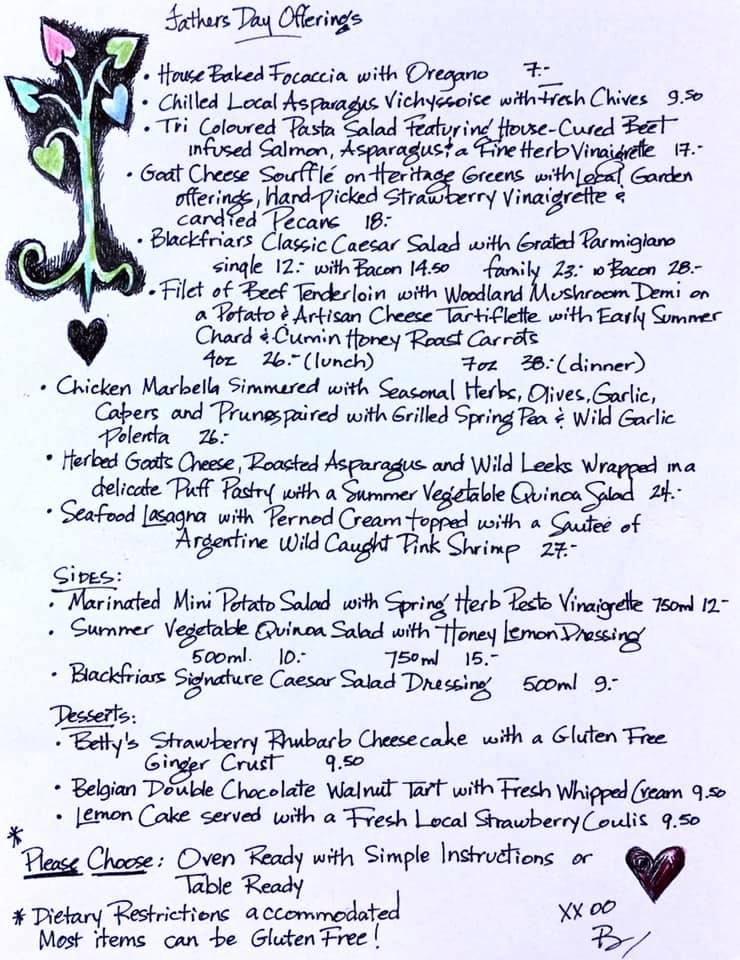 Fathers Day Offerings
• House Baked Focaccia with Oregano 7.-
• Chilled Local Asparagus Vichyssoise with fresh Chives 9.50
• Tri Coloured Pasta Salad Featuring House-Cured Beet
infused Salmon, Asparagus & a Fine Herb Vinaigrette 17.-
• Goat Cheese Soufflé on Heritage Greens with Local Garden
offerings, Hand-picked Strawberry Vinaigrette &
candied Pecans 18.-
• Blackfriars Classic Caesar Salad with Grated Parmigiano
single 12.- with Bacon 14.50 family 23.- w Bacon 28.-
• Filet of Beef Tenderloin with Woodland Mushroom Demi on
a Potato & Artisan Cheese Tartiflette with Early Summer
Chard & Cumin Honey Roast Carrots
4oz 26.- (lunch) 7oz 38.- (dinner)
• Chicken Marbella Simmered with Seasonal Herbs, Olives, Garlic,
Capers and Prunes paired with Grilled Spring Pea & Wild Garlic
Polenta 26.-
• Herbed Goats Cheese, Roasted Asparagus and Wild Leeks Wrapped in a
delicate Puff Pastry with a Summer Vegetable Quinoa Salad 24.-
• Seafood Lasagna with Pernod Cream topped with a Sauteé of
Argentine Wild Caught Pink Shrimp 27.-
Sides:
• Marinated Mini Potato Salad with Spring Herb Pesto Vinaigrette 750ml 12-
• Summer Vegetable Quinoa Salad with Honey Lemon Dressing
500ml. 10.- 750ml 15.-
• Blackfriars Signature Caesar Salad Dressing 500ml 9.-
Desserts:
• Betty's Strawberry Rhubarb Cheesecake with a Gluten Free
Ginger Crust 9.50
• Belgian Double Chocolate Walnut Tart with Fresh Whipped Cream 9.50
• Lemon Cake served with a Fresh Local Strawberry Coulis 9.50
*
Please Choose: Oven Ready with Simple Instructions or
Table Ready
* Dietary Restrictions accommodated
Most items can be Gluten Free!
XX OO
B